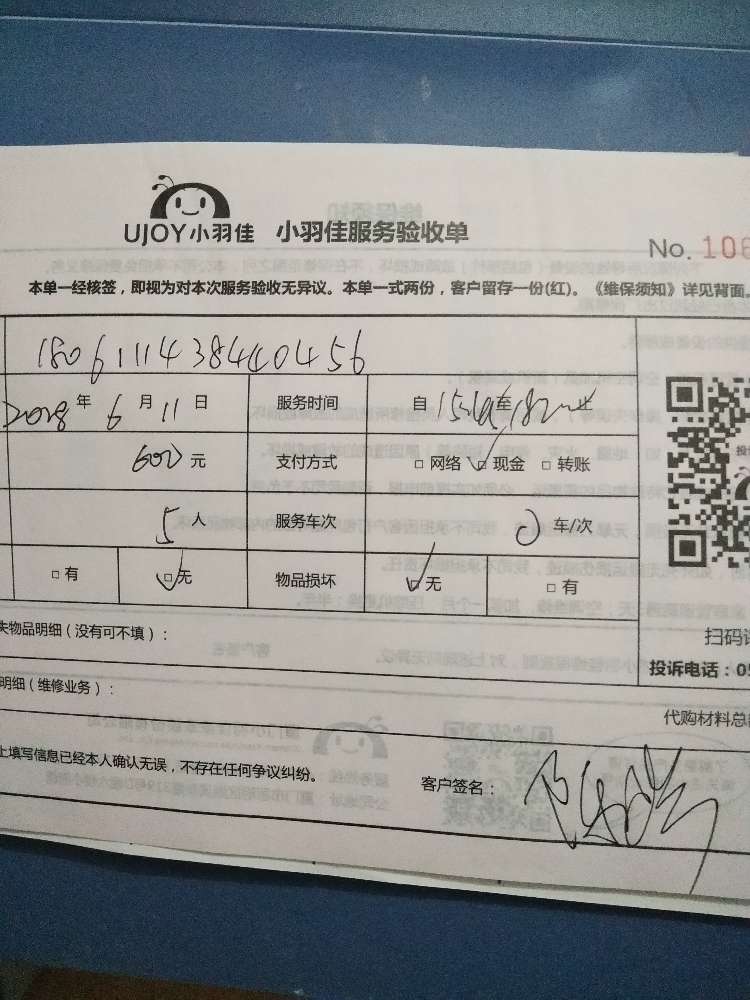 UJOY小羽佳 小羽佳服务验收单
No. 106
本单一经核签，即视为对本次服务验收无异议。本单一式两份，客户留存一份(红)。《维保须知》详见背面。
1806111438440456
2018年6月11日 服务时间 自 至
600元 支付方式 □网络 □现金 □转账
5人 服务车次 0车/次
□有 □无 物品损坏 □无 □有
失物品明细（没有可不填）：
扫码
投诉电话：05
明细（维修业务）：
代购材料总
上填写信息已经本人确认无误，不存在任何争议纠纷。
客户签名：